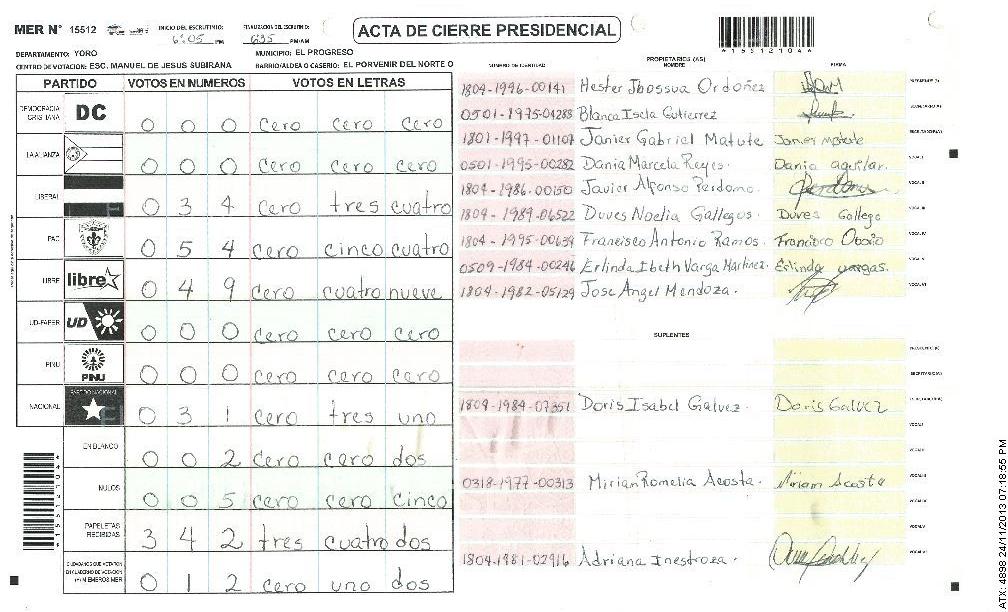 MER N° 15512
INICIO DEL ESCRUTINIO:
6:05 PM
FINALIZACION DEL ESCRUTINIO:
635 PM/AM
ACTA DE CIERRE PRESIDENCIAL
DEPARTAMENTO: YORO
MUNICIPIO: EL PROGRESO
CENTRO DE VOTACION: ESC. MANUEL DE JESUS SUBIRANA
BARRIO/ALDEA O CASERIO: EL PORVENIR DEL NORTE O
PARTIDO VOTOS EN NUMEROS VOTOS EN LETRAS
DEMOCRACIA CRISTIANA DC 0 0 0 cero cero cero
LA ALIANZA 0 0 0 cero cero cero
LIBERAL 0 3 4 cero tres cuatro
PAC 0 5 4 cero cinco cuatro
LIBRE libre 0 4 9 cero cuatro nueve
UD-FAPER UD 0 0 0 cero cero cero
PINU PINU 0 0 0 cero cero cero
NACIONAL PARTIDO NACIONAL 0 3 1 cero tres uno
EN BLANCO 0 0 2 cero cero dos
NULOS 0 0 5 cero cero cinco
PAPELETAS RECIBIDAS 3 4 2 tres cuatro dos
CIUDADANOS QUE VOTARON EN CUADERNO DE VOTACION (P) MIEMBROS MER 0 1 2 cero uno dos
PROPIETARIOS (AS)
NUMERO DE IDENTIDAD NOMBRE FIRMA
1804-1996-00141 Hester Jbossua Ordoñez PRESIDENTE (A)
0501-1975-04283 Blanca Iscla Gutierrez SECRETARIO(A)
1801-1997-01107 Janier Gabriel Matute Janier Matute ESCRUTADOR(A)
0501-1995-00282 Dania Marcela Reyes. Dania aguilar. VOCAL I
1804-1986-00150 Javier Alfonso Perdomo. Perdomo VOCAL II
1804-1989-06522 Duves Noelia Gallegos. Duves Gallego VOCAL III
1804-1995-00639 Francisco Antonio Ramos. Francisco VOCAL IV
0509-1984-00246 Erlinda Ibeth Varga Martinez. Erlinda vargas. VOCAL V
1804-1982-05129 Jose Angel Mendoza. VOCAL VI
SUPLENTES
PRESIDENTE (A)
SECRETARIO(A)
1804-1984-07351 Doris Isabel Galvez. Doris Galvez ESCRUTADOR(A)
VOCAL I
VOCAL II
0318-1977-00313 Mirian Romelia Acosta. Miriam Acosta VOCAL III
VOCAL IV
VOCAL V
1804-1981-02916 Adriana Inestroza. VOCAL VI
ATX: 4898 24/11/2013 07:18:55 PM